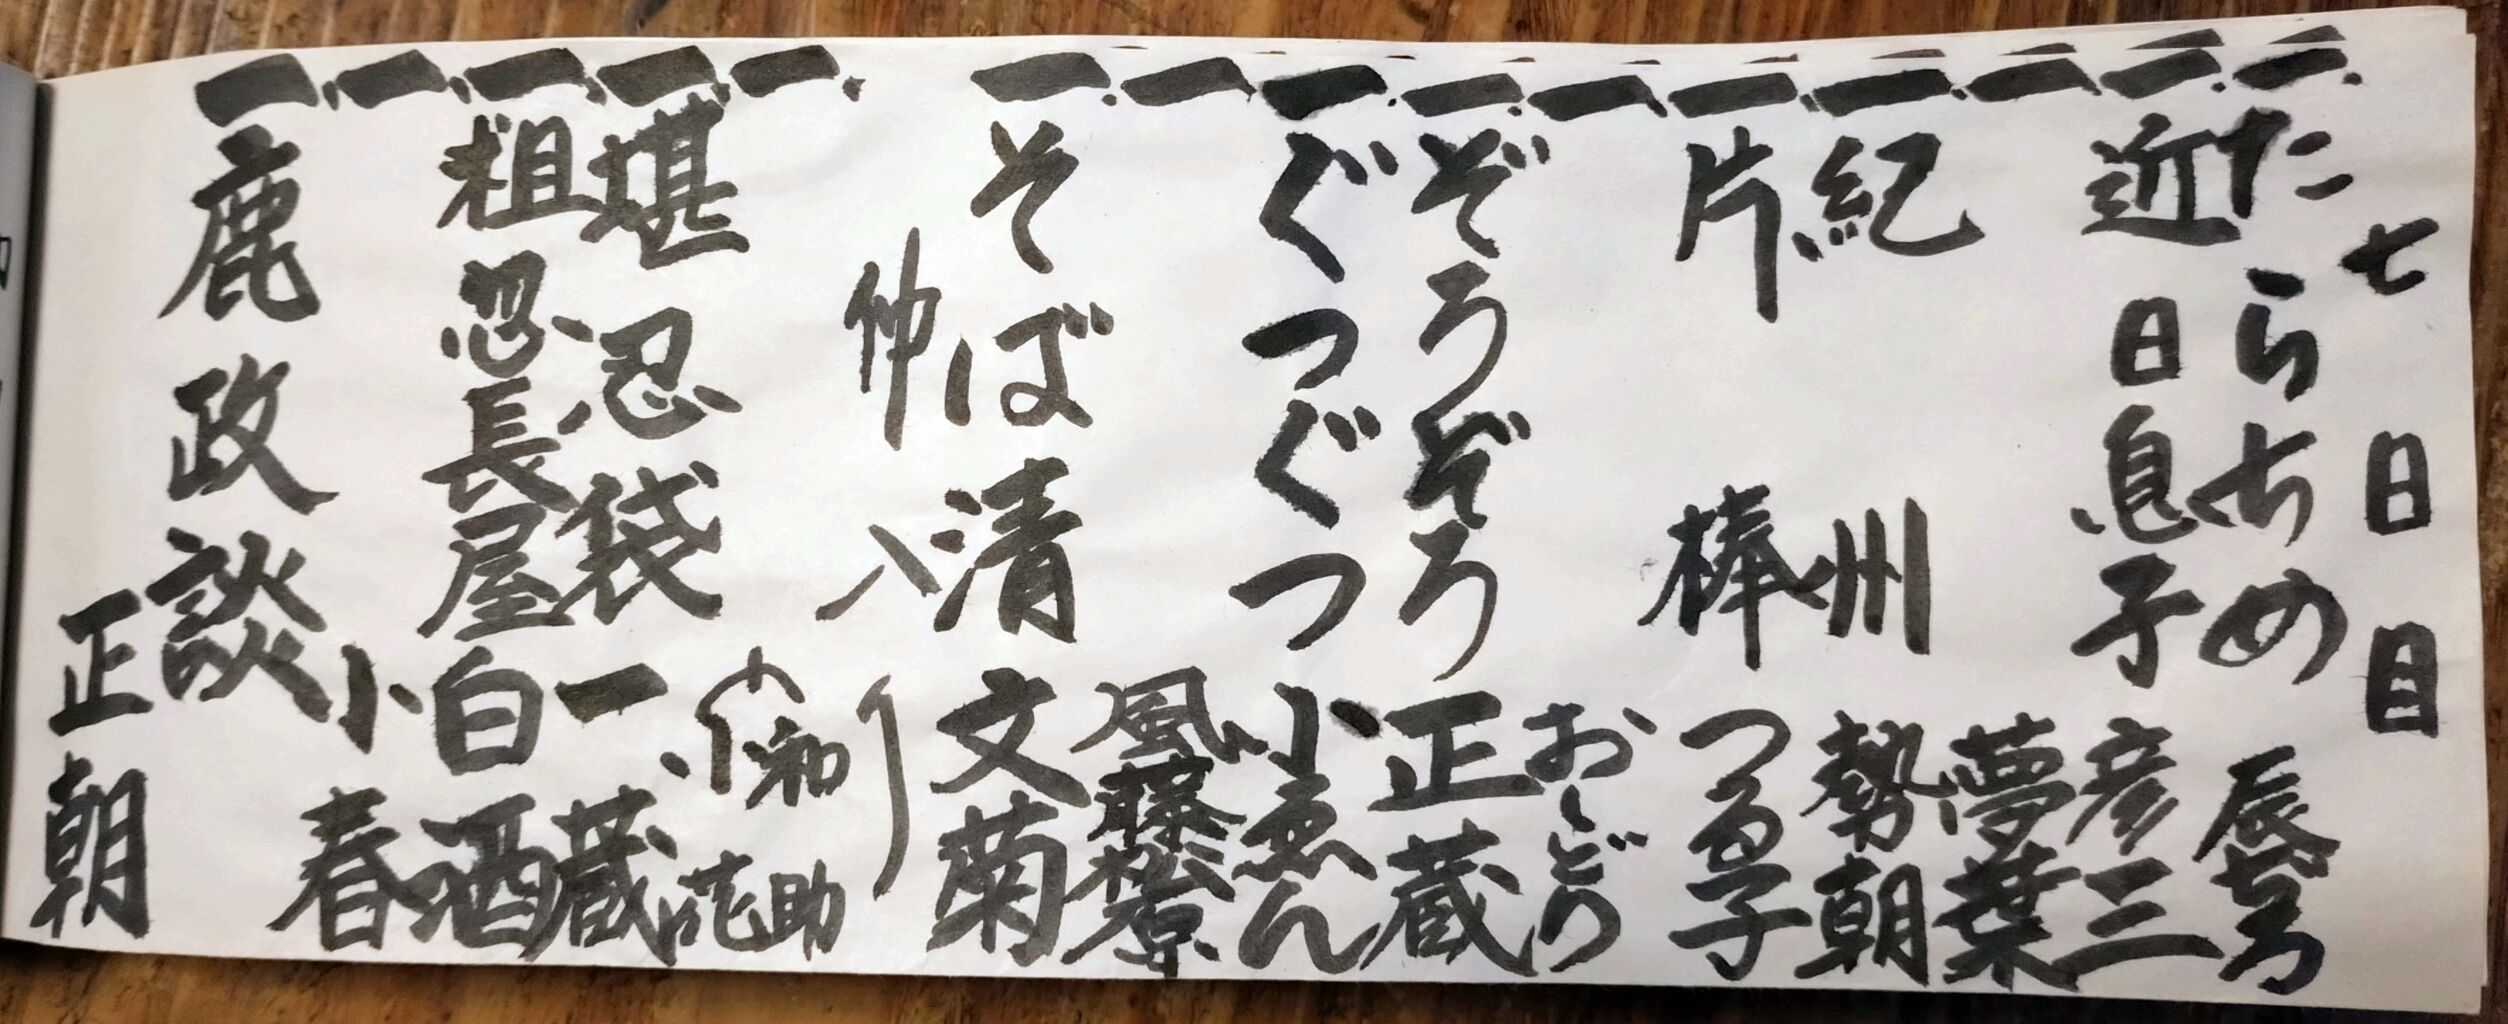 七日目
一、たらちめ 辰ぢろ
一、近日息子 彦三
一、夢葉
一、紀州 勢朝
一、片棒 つる子
一、おしどり
一、ぞろぞろ 正蔵
一、ぐつぐつ 小ゑん
一、風藤松原
一、そば清 文菊
仲入り
一、和助
小花
一、堪忍袋 一蔵
一、粗忽長屋 白酒
一、小春
一、鹿政談 正朝